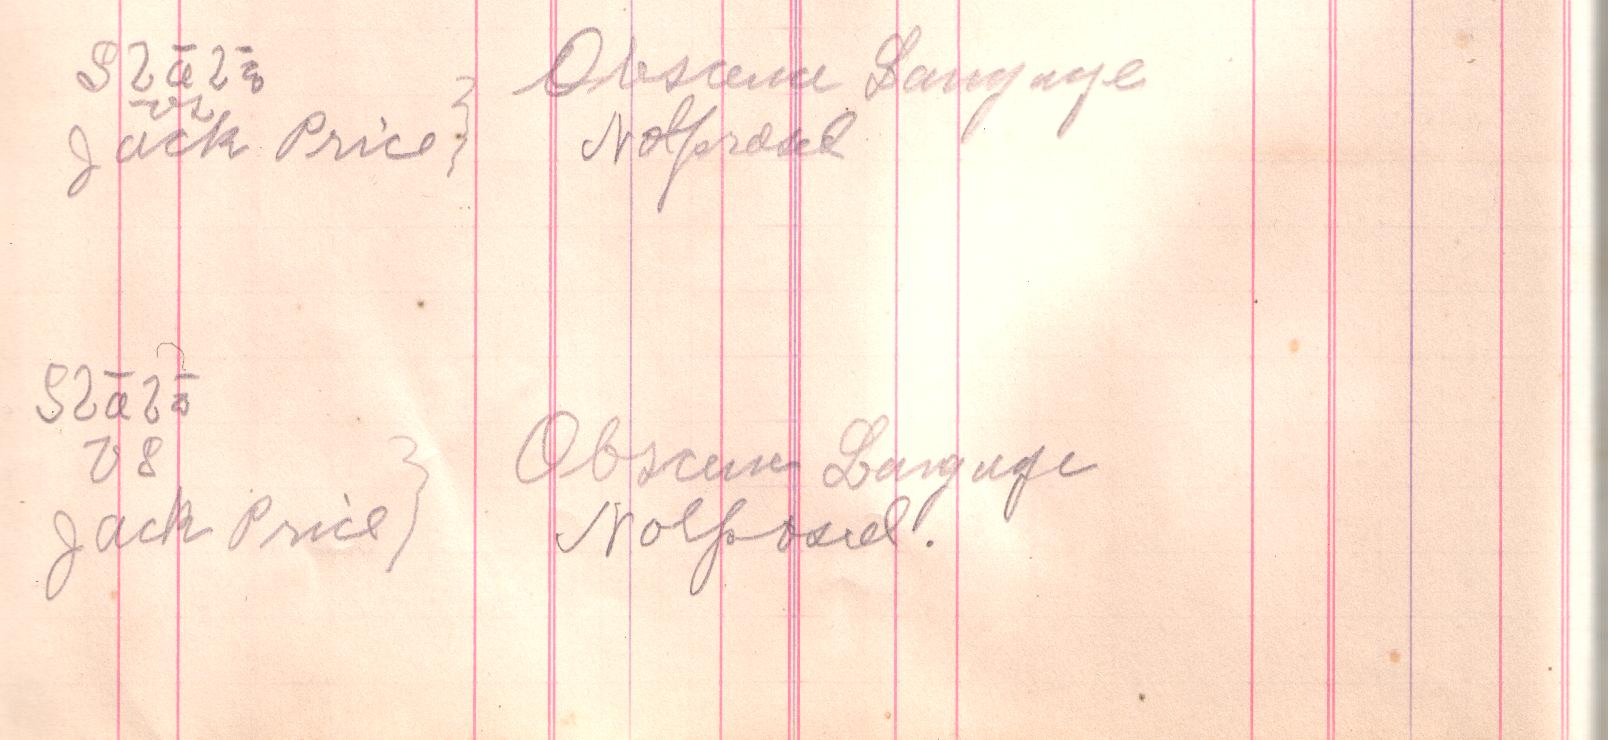 State
vs
Jack Price } Obscene Language
Nolprosed
State
vs
Jack Price } Obscene Language
Nolprosed.